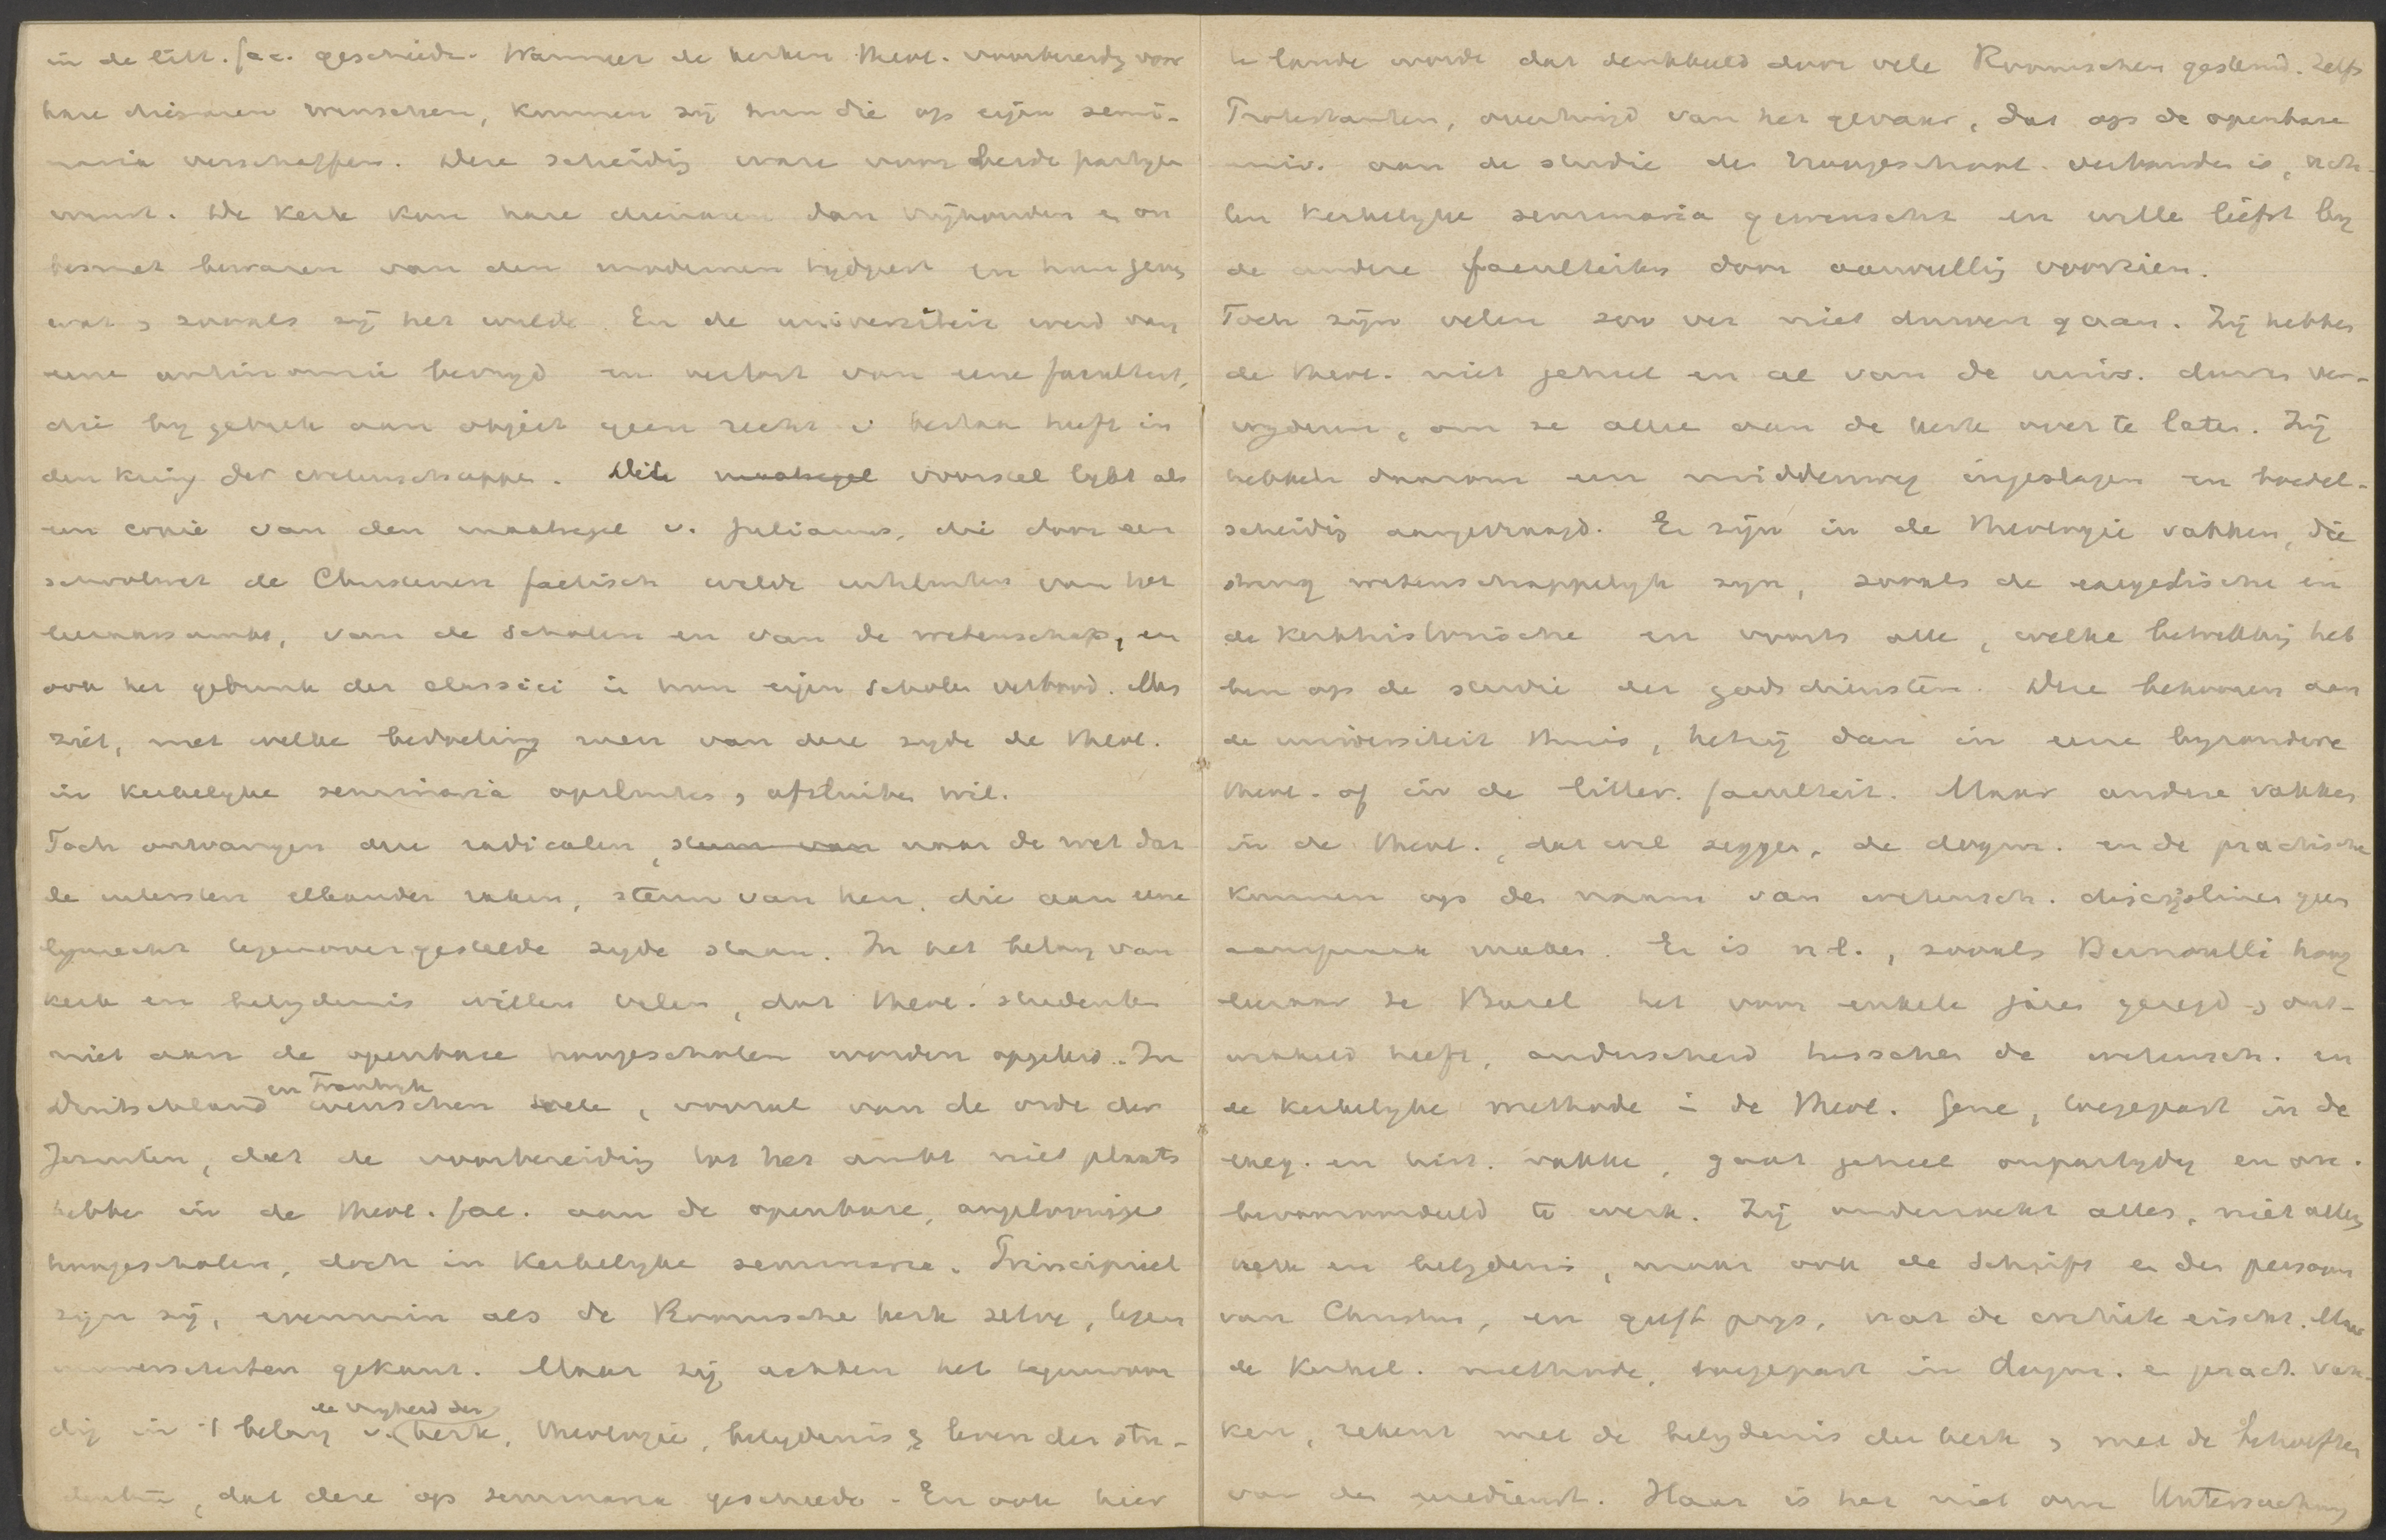 in de litt. fac. geschiede. Wanneer de kerken theol. voorbereidg voor
hare dienaren wenschen, kunnen zij hun die op eigen semi-
naria verschaffen. Deze scheidig ware voor beide partyen
winst. De kerk kon hare dienaren dan vrijhouden en on
besmet bewaren van den modernen tydgeest en hun geven
wat, zooals zij het wilde. En de universiteit werd van
eene antinomie bevryd en verlost van eene faculteit,
die by gebrek aan object geen recht v. bestaan heeft in
den kring der wetenschappen. Dit maatregel voorstel lykt als
een copie van den maatregel v. Julianus, die door een
schoolwet de Christenen factisch wilde uitsluiten van het
leeraarsambt, van de scholen en van de wetenschap, en
ook het gebruik der classici in hun eigen scholen verbood. Men
ziet, met welke bedoeling men van deze zyde de theol.
in kerkelyke seminaria opsluiten, afsluiten wil.
Toch ontvangen deze radicalen, steun van naar de wet dat
de uitersten elkander raken, steun van hen, die aan eene
lynrecht tegenovergestelde zyde staan. In het belang van
kerk en belydenis willen velen, dat theol. studenten
niet aan de openbare hoogescholen worden opgeleid. In
Duitschland en Frankryk wenschen vele, vooral van de orde der
Jezuiten, dat de voorbereidig tot het ambt niet plaats
hebbe in de theol. fac. aan de openbare, ongeloovige
hoogescholen, doch in kerkelyke seminarie. Principieel
zyn zij, evenmin als de Roomsche kerk zelve, tegen
universiteiten gekant. Maar zij achten het tegenwoor
dig in 't belang v. de vryheid der kerk, theologie, belydenis & leven der stu-
denten, dat deze op seminaria geschiede. En ook hier
te lande wordt dat denkbeeld door vele Roomschen gesteund. Zelfs
Protestanten, overtuigd van het gevaar, dat op de openbare
univ. aan de studie der verbonden is, ach-
ten kerkelyke seminaria gewenscht en wille liefst by
de andere faculteiten door aanvullig voorzien.
Toch zijn velen zoo ver niet durven gaan. Zij hebben
de theol. niet geheel en al van de univ. durven ver-
wyderen, om ze alle aan de kerk over te laten. Zij
hebben daarom een middenweg ingeslagen en boedel-
scheidig aangevraagd. Er zijn in de theologie vakken, die
streng wetenschappelyk zyn, zooals de exegetische en
de kerkhistorische en voorts alle, welke betrekkig heb
ben op de studie der godsdiensten. Deze behooren aan
de universiteit thuis, hetzij dan in eene byzondere
theol. of in de litter. faculteit. Maar andere vakken
in de theol., dat wil zeggen, de dogm. en de practische
kunnen op den naam van wetensch. disciplines geen
aanspraak maken. Er is n.l., zooals Bernoulli hoog
leeraar te Bazel het voor enkele jaren gezegd, ont-
wikkeld heeft, onderscheid tusschen de wetensch. en
de kerkelyke methode in de theol. Gene, toegepast in de
exeg. en hist. vakke, gaat geheel onpartydig en on-
bevooroordeeld te werk. Zij onderzoekt alles, niet alleen
kerk en belydenis, maar ook de Schrift en den persoon
van Christus, en geeft prys, wat de critiek eischt. Maar
de kerkel. methode, toegepast in dogm. en pract. vak-
ken, rekent met de belydenis der kerk, met de behoeften
van den eredienst. Haar is het niet om Untersuchung